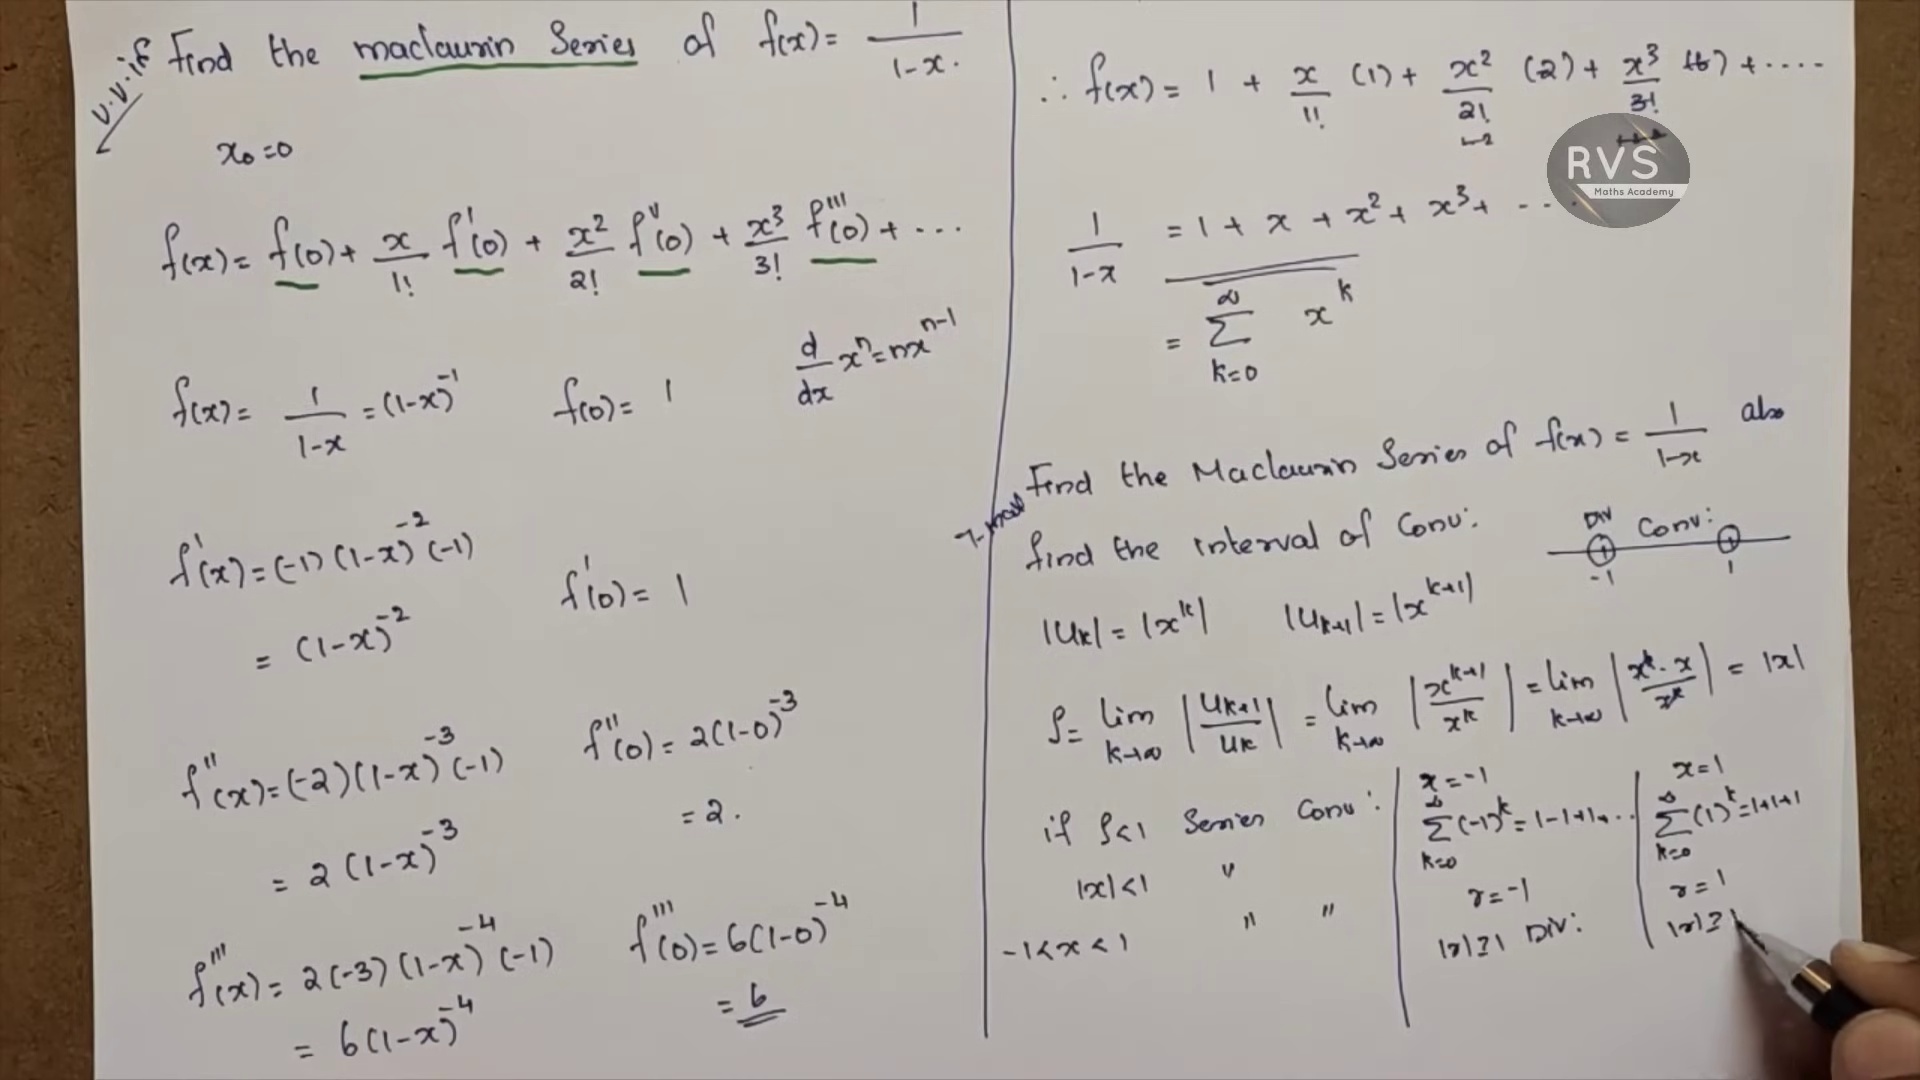 v.v.if Find the maclaurin Series of f(x) = 1/1-x.
x₀=0
f(x) = f(0) + x/1! f'(0) + x²/2! f''(0) + x³/3! f'''(0) + ...
d/dx xⁿ = nxⁿ⁻¹
f(x) = 1/1-x = (1-x)⁻¹ f(0) = 1
f'(x) = (-1)(1-x)⁻²(-1)
= (1-x)⁻² f'(0) = 1
f''(x) = (-2)(1-x)⁻³(-1) f''(0) = 2(1-0)⁻³
= 2(1-x)⁻³ = 2.
f'''(x) = 2(-3)(1-x)⁻⁴(-1) f'''(0) = 6(1-0)⁻⁴
= 6(1-x)⁻⁴ = 6
∴ f(x) = 1 + x/1! (1) + x²/2! (2) + x³/3! (6) + ....
RVS
Maths Academy
1/1-x = 1 + x + x² + x³ + ...
= ∞ Σ k=0 xᵏ
Find the Maclaurin Series of f(x) = 1/1-x also
find the interval of Conv:
Div Conv:
-1 1
|Uₖ| = |xᵏ| |Uₖ₊₁| = |xᵏ⁺¹|
ρ = lim k→∞ |Uₖ₊₁/Uₖ| = lim k→∞ |xᵏ⁺¹/xᵏ| = lim k→∞ |xᵏ·x/xᵏ| = |x|
if ρ<1 Series Conv:
|x|<1 "
-1<x<1 " "
x=-1
∞ Σ k=0 (-1)ᵏ = 1-1+1...
r=-1
|r|≥1 Div:
x=1
∞ Σ k=0 (1)ᵏ = 1+1+1
r=1
|r|≥1